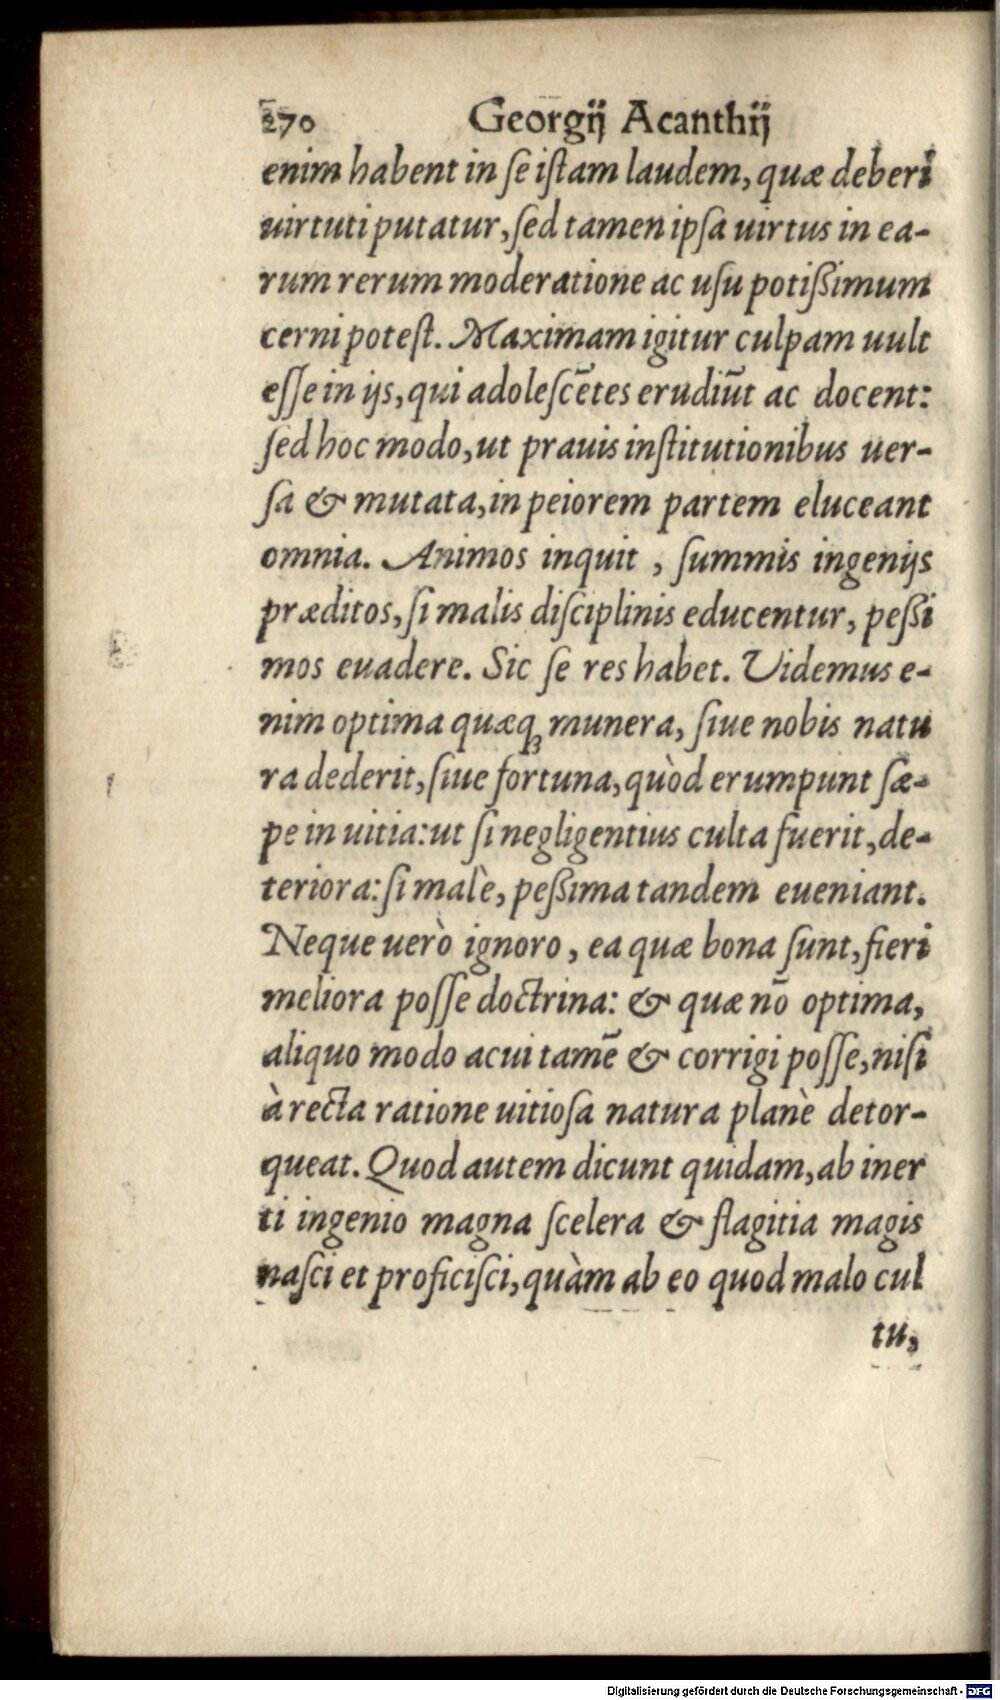 270 Georgij Acanthij
enim habent in ſe iſtam laudem, quæ deberi
uirtuti putatur, ſed tamen ipſa uirtus in ea-
rum rerum moderatione ac uſu potißimum
cerni poteſt. Maximam igitur culpam uult
eſſe in ijs, qui adoleſcẽtes erudiũt ac docent:
ſed hoc modo, ut prauis inſtitutionibus uer-
ſa & mutata, in peiorem partem eluceant
omnia. Animos inquit, ſummis ingenijs
præditos, ſi malis diſciplinis educentur, peßi
mos euadere. Sic ſe res habet. Videmus e-
nim optima quæq; munera, ſiue nobis natu
ra dederit, ſiue fortuna, quòd erumpunt ſæ-
pe in uitia: ut ſi negligentius culta fuerit, de-
teriora: ſi malè, peßima tandem eueniant.
Neque uerò ignoro, ea quæ bona ſunt, fieri
meliora poſſe doctrina: & quæ nõ optima,
aliquo modo acui tamẽ & corrigi poſſe, niſi
à recta ratione uitioſa natura planè detor-
queat. Quod autem dicunt quidam, ab iner
ti ingenio magna ſcelera & flagitia magis
naſci et proficiſci, quàm ab eo quod malo cul
tu,
Digitalisierung gefördert durch die Deutsche Forschungsgemeinschaft - DFG